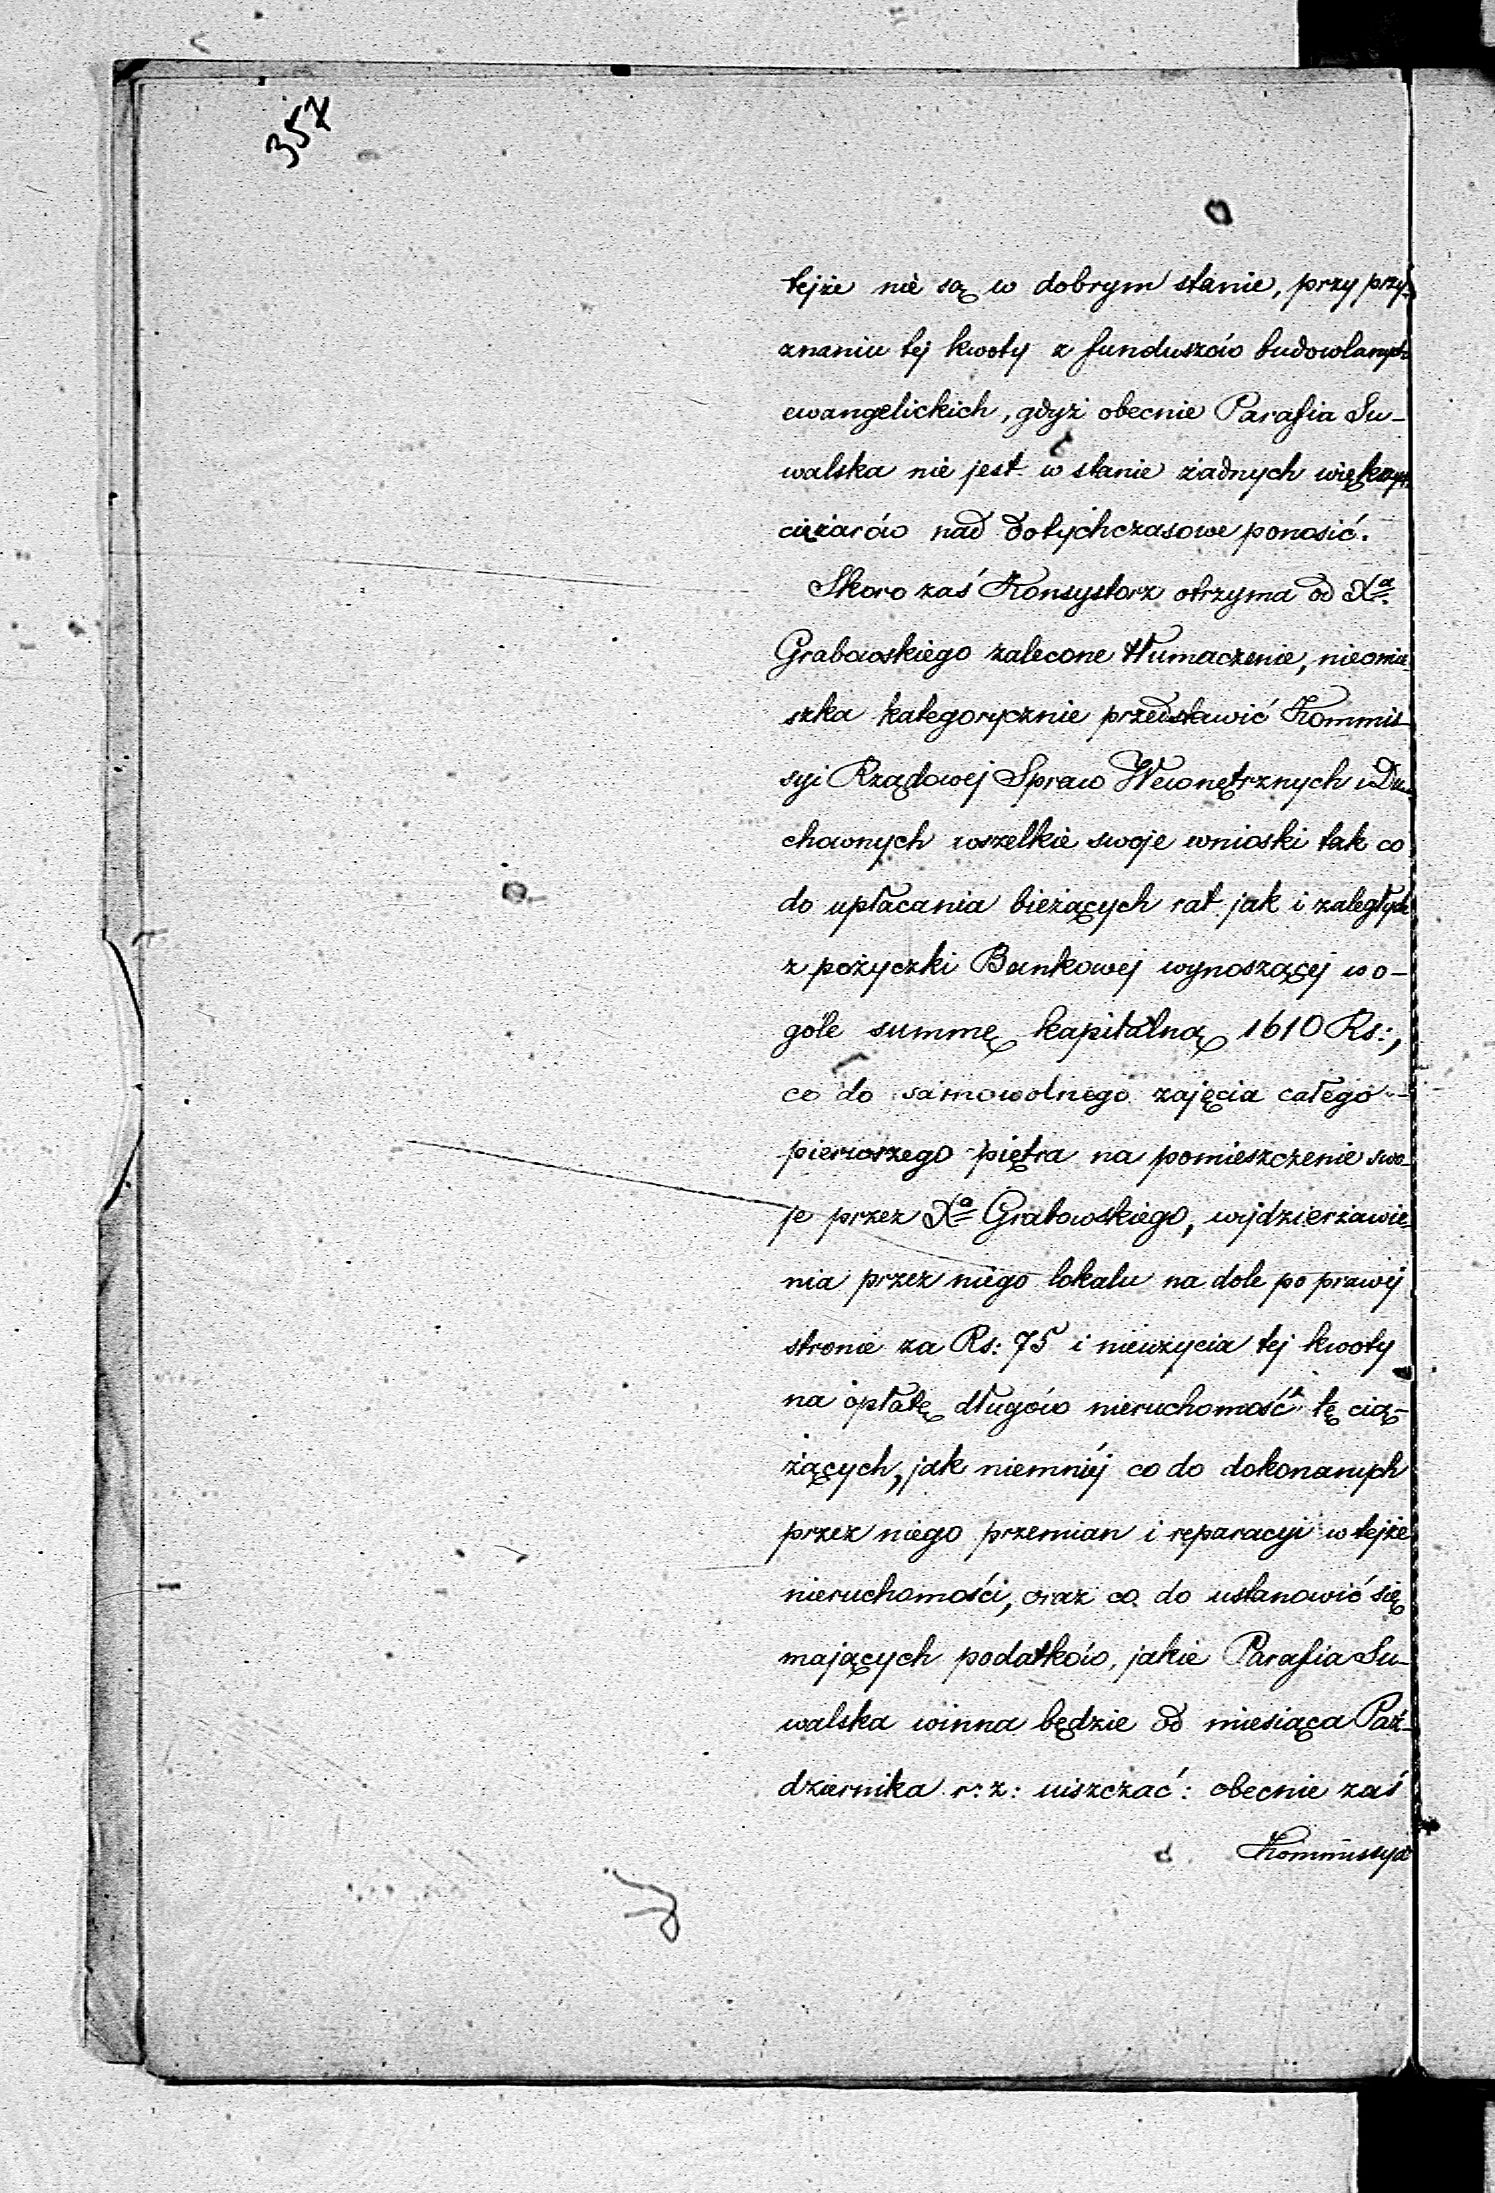 357
tejże nie są w dobrym stanie, przy przy-
znaniu tej kwoty z funduszów budowlanych
ewangelickich, gdyż obecnie Parafia Su-
walska nie jest w stanie żadnych większych
ciężarów nad dotychczasowe ponosić.
Skoro zaś Konsystorz otrzyma od Xa.
Grabowskiego zalecone tłumaczenie, nieomie-
szka kategorycznie przedstawić Kommis-
syi Rządowej Spraw Wewnętrznych i Du-
chownych wszelkie swoje wnioski tak co
do upłacania bieżących rat jak i zaległych
z pożyczki Bankowej wynoszącej wo-
góle summę kapitalną 1610 Rs:,
co do samowolnego zajęcia całego
pierwszego piętra na pomieszczenie swo-
je przez Xa Grabowskiego, wydzierżawie-
nia przez niego lokalu na dole po prawej
stronie za Rs: 75 i nieużycia tej kwoty
na opłatę długów nieruchomość tę cią-
żących, jak niemniéj co do dokonanych
przez niego przemian i reparacyi w tejże
nieruchomości, oraz co do ustanowić się
mających podatków, jakie Parafia Su-
walska winna będzie od miesiąca Paź-
dziernika r: z: uiszczać: obecnie zaś
Kommissya